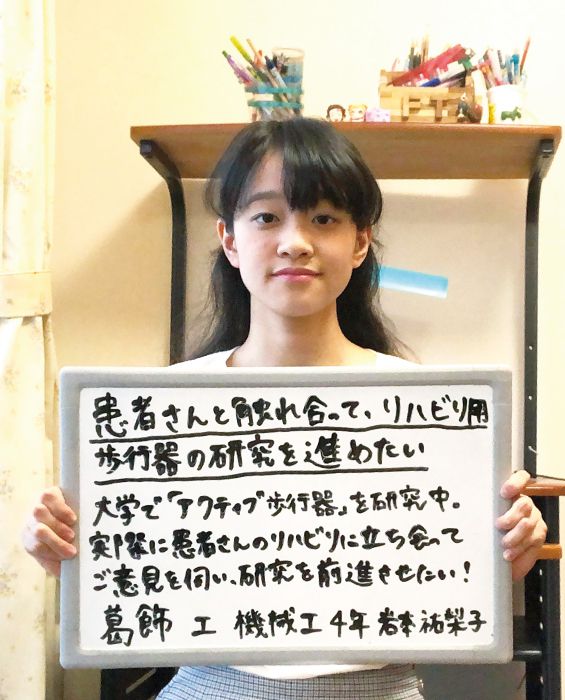 患者さんと触れ合って、リハビリ用
歩行器の研究を進めたい
大学で「アクティブ歩行器」を研究中。
実際に患者さんのリハビリに立ち会って
ご意見を伺い、研究を前進させたい！
葛飾 工 機械工4年 岩本祐梨子